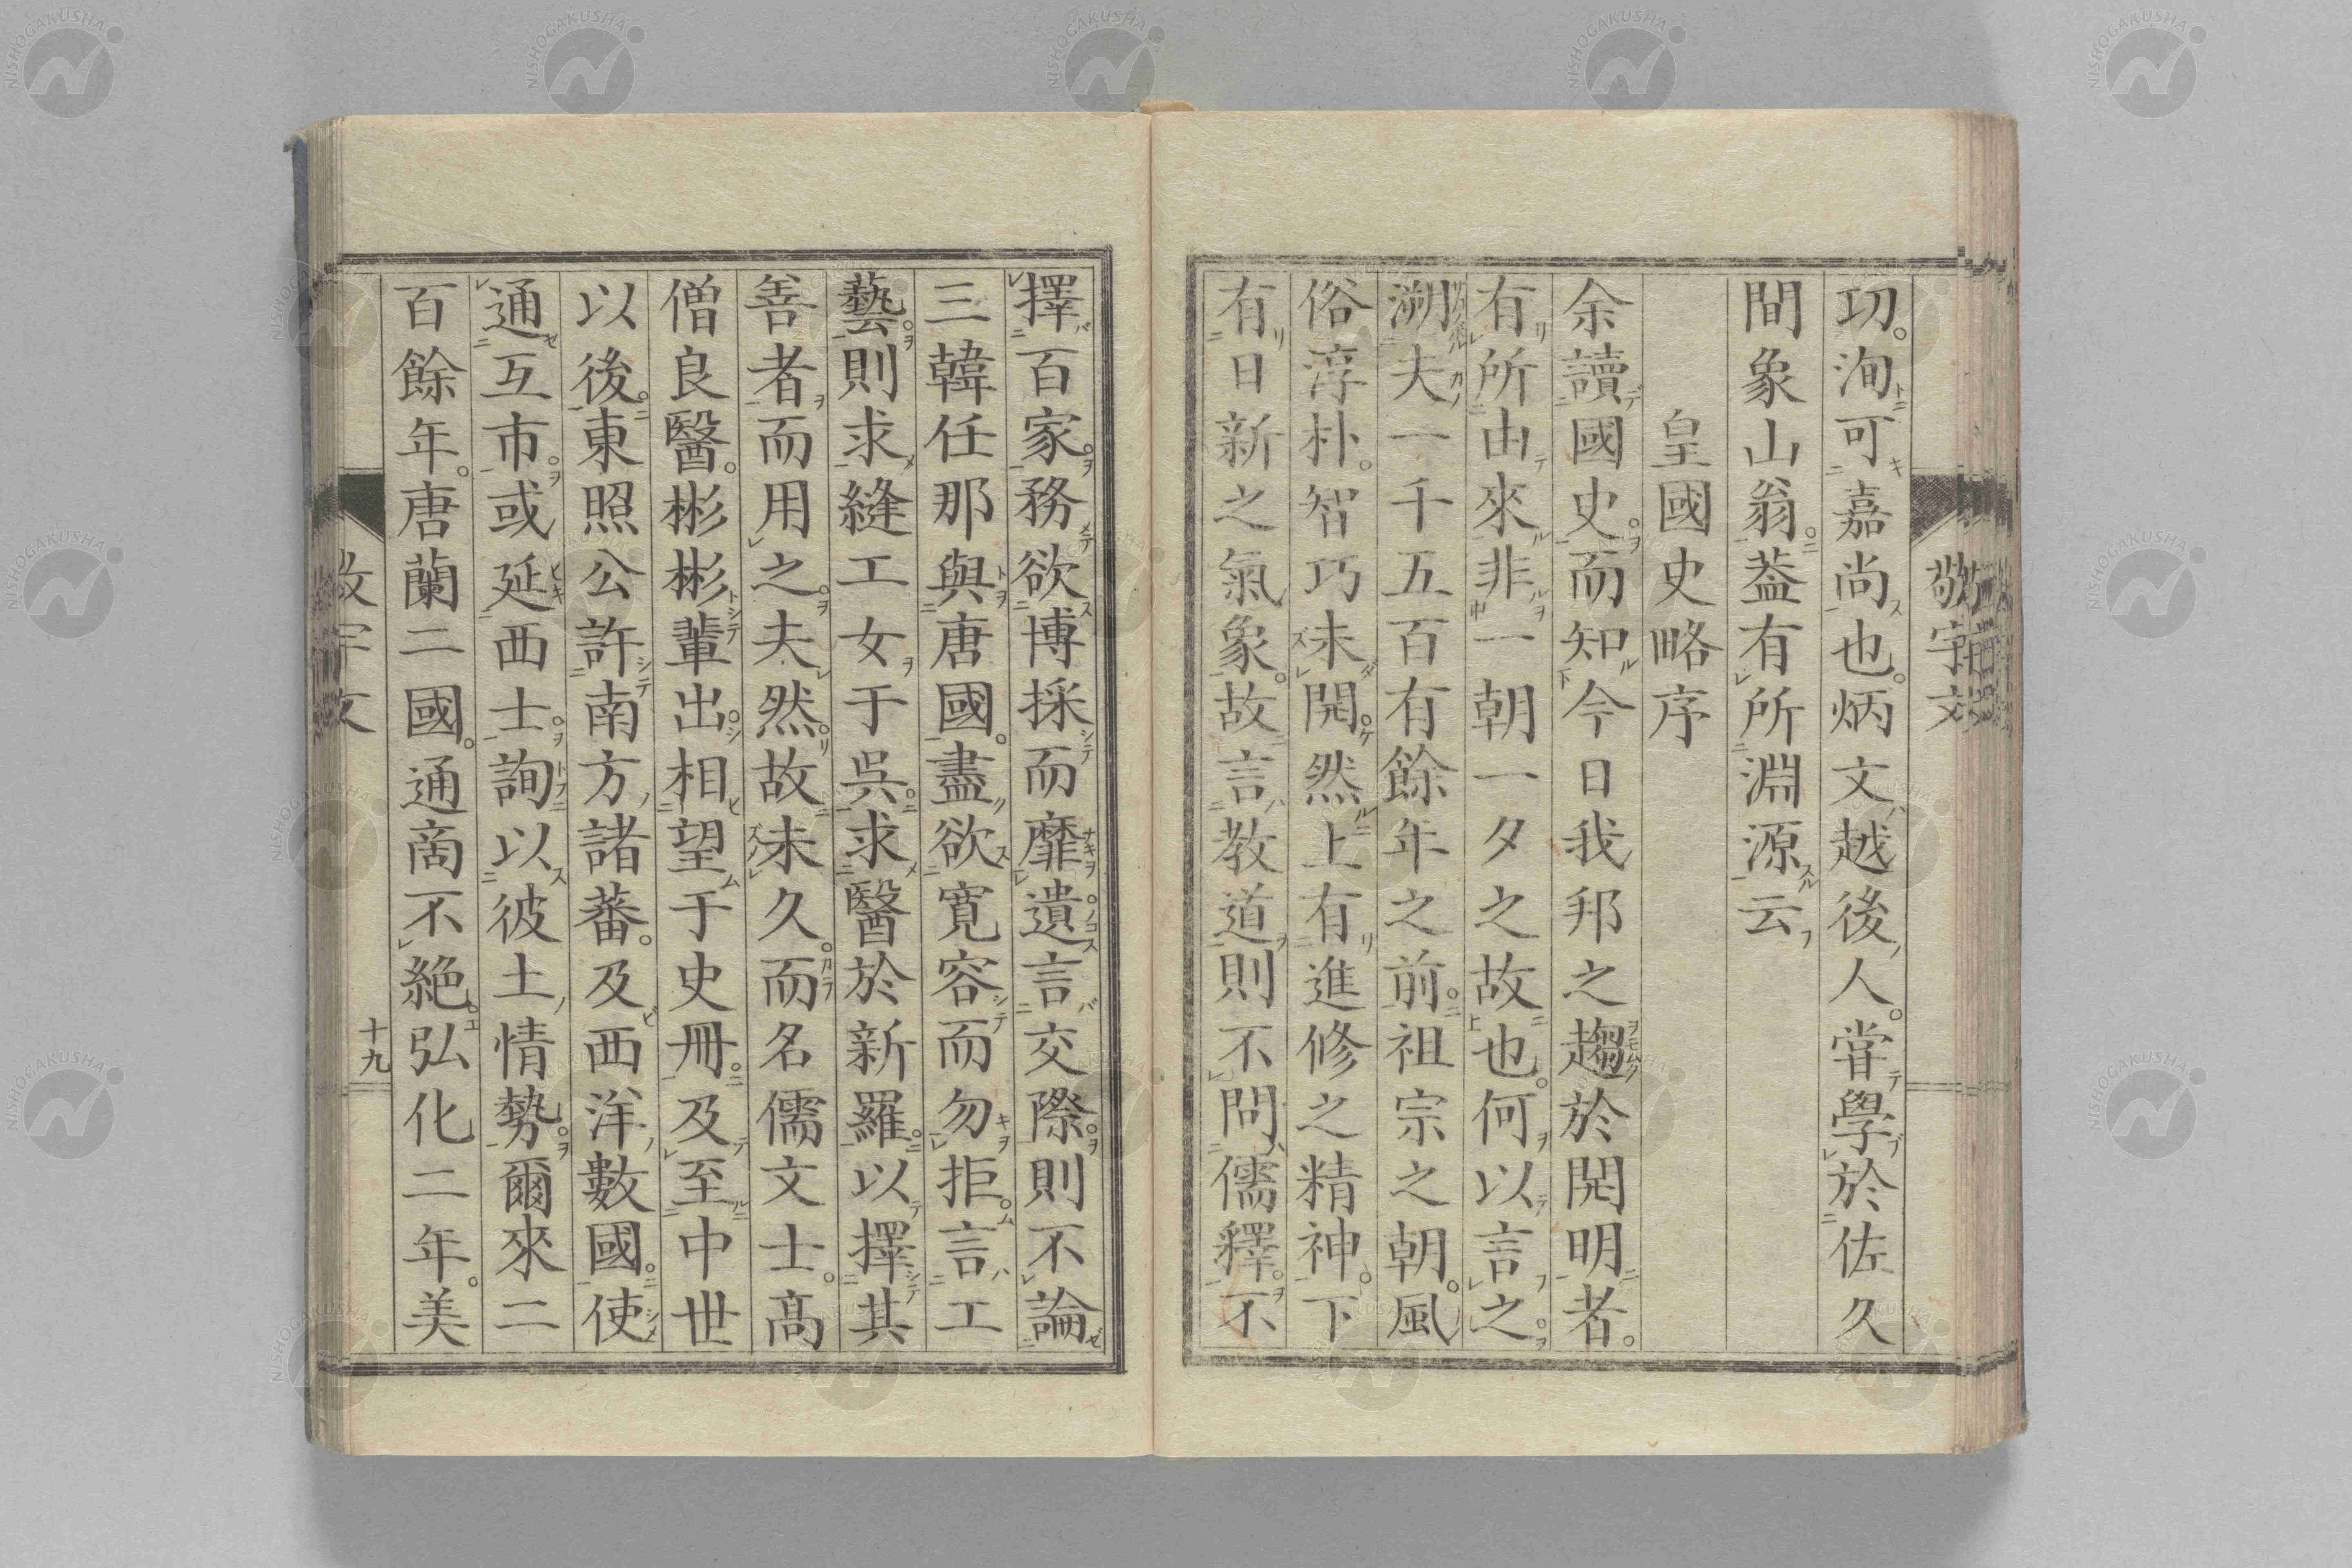 功。洵可嘉尚也。炳文越後人。甞學於佐久
間象山翁。葢有所淵源云
皇國史略序
余讀國史。而知今日我邦之趨於開明者。
有所由來非一朝一夕之故也。何以言之。
溯夫一千五百有餘年之前。祖宗之朝。風
俗淳朴。智巧未開。然上有進修之精神。下
有日新之氣象。故言教道則不問儒釋。不
擇百家。務欲博採而靡遺。言交際。則不論
三韓任那與唐國。盡欲寬容而勿拒。言工
藝。則求縫工女于吳。求醫於新羅。以擇其
善者而用之。夫然。故未久。而名儒文士。高
僧良醫。彬彬輩出。相望于史冊。及至中世
以後。東照公許南方諸蕃。及西洋數國。使
通互市。或延西士。詢以彼土情勢。爾來二
百餘年。唐蘭二國。通商不絕。弘化二年。美
敬宇文
十九